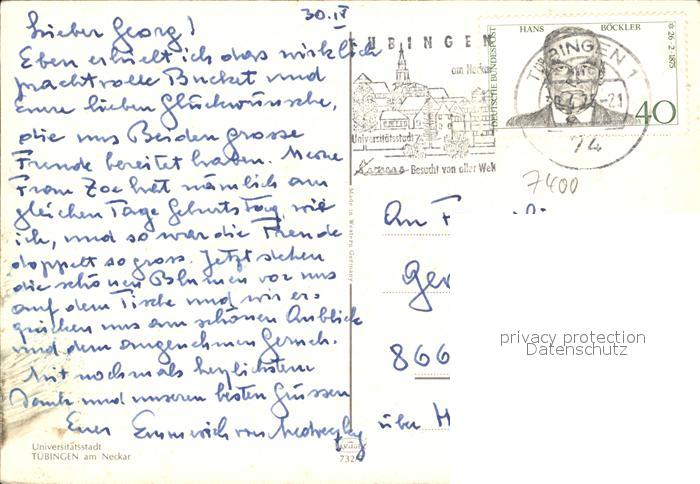 30.IV
Lieber Georg!
Eben erhielt ich das wirklich
prachtvolle Bucket und
Eure lieben Glückwünsche,
die uns Beiden grosse
Freude bereitet haben. Meine
Frau Zoe hat nämlich am
gleichen Tage Geburtstag, wie
ich, und so war die Freude
doppelt so gross. Jetzt stehen
die schönen Blumen vor uns
auf dem Tische und wir er-
quicken uns am schönen Anblick
und dem angenehmen Geruch.
Mit nochmals herzlichstem
Dank und unseren besten Grüssen
Euer Emmerich von
Universitätsstadt
TÜBINGEN am Neckar
Made in Western Germany
732/
TÜBINGEN
am Neckar
Universitätsstadt
Besucht von aller Welt
TÜBINGEN 1
-21
74
DEUTSCHE BUNDESPOST
HANS BÖCKLER
* 26·2·1875
40
7400
An F
Ger
866
über H
privacy protection
Datenschutz